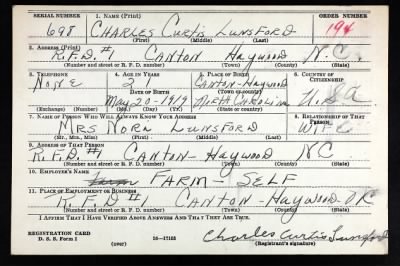 SERIAL NUMBER 1. NAME (Print) ORDER NUMBER
698 CHARLES CURTIS LUNSFORD 194
(First) (Middle) (Last)
2. ADDRESS (Print)
R.F.D. #1 CANTON Haywood N.C.
(Number and street or R. F. D. number) (Town) (County) (State)
3. TELEPHONE 4. AGE IN YEARS 5. PLACE OF BIRTH 6. COUNTRY OF CITIZENSHIP
NONE 21 CANTON-Haywood
DATE OF BIRTH (Town) (County)
May-20-1919 NORTH CAROLINA U.S.A
(Exchange) (Number) (Mo.) (Day) (Yr.) (State or country)
7. NAME OF PERSON WHO WILL ALWAYS KNOW YOUR ADDRESS 8. RELATIONSHIP OF THAT PERSON
MRS NORA LUNSFORD WIFE
(Mr., Mrs., Miss) (First) (Middle) (Last)
9. ADDRESS OF THAT PERSON
R.F.D. #1 CANTON- Haywood NC
(Number and street or R. F. D. number) (Town) (County) (State)
10. EMPLOYER'S NAME
FARM- SELF
11. PLACE OF EMPLOYMENT OR BUSINESS
R.F.D #1 CANTON-Haywood-
(Number and street or R. F. D. number) (Town) (County) (State)
I AFFIRM THAT I HAVE VERIFIED ABOVE ANSWERS AND THAT THEY ARE TRUE.
REGISTRATION CARD
D. S. S. Form 1 (over) 16-17105 Charles Curtis Lunsford
(Registrant's signature)